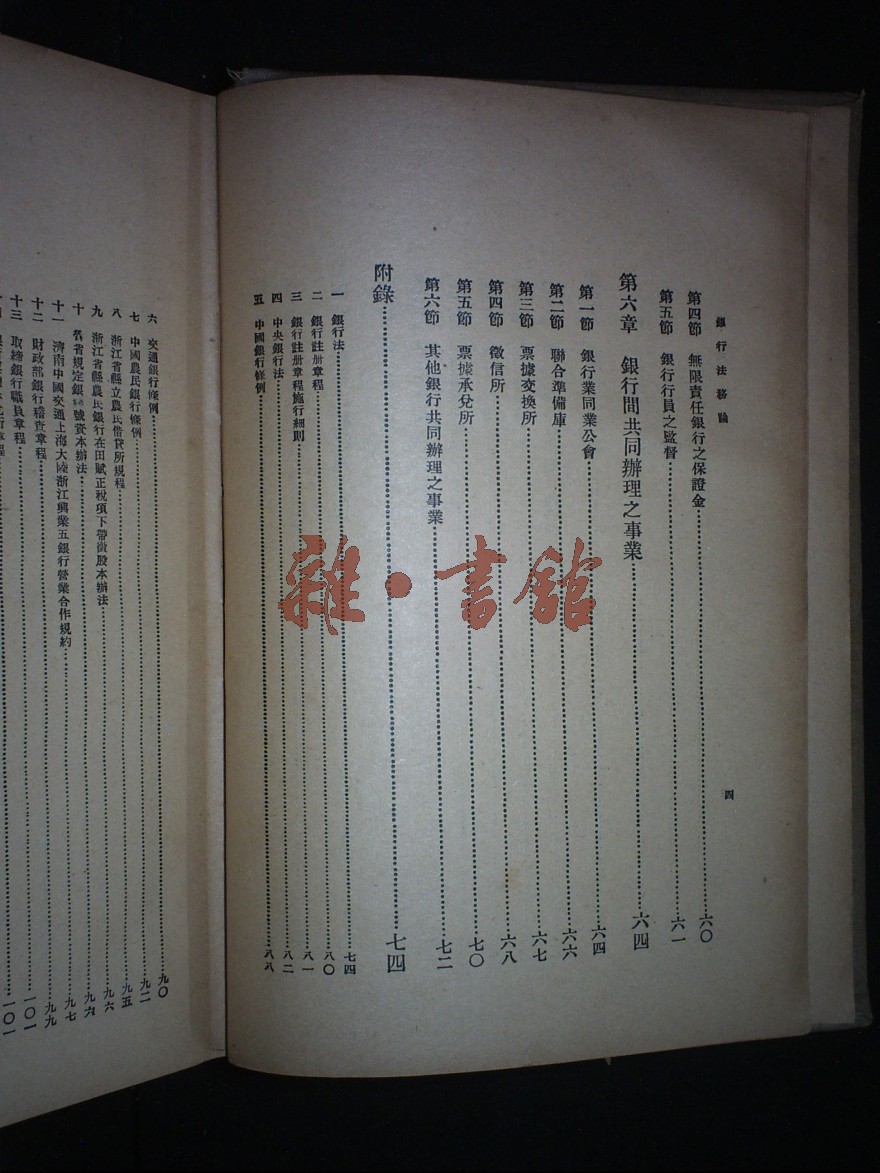 銀行法務論
四
第四節 無限責任銀行之保證金 六〇
第五節 銀行行員之監督 六一
第六章 銀行間共同辦理之事業 六四
第一節 銀行業同業公會 六四
第二節 聯合準備庫 六六
第三節 票據交換所 六七
第四節 徵信所 六八
第五節 票據承兌所 七〇
第六節 其他銀行共同辦理之事業 七二
附錄 七四
一 銀行法 七四
二 銀行註册章程 八〇
三 銀行註册章程施行細則 八一
四 中央銀行法 八二
五 中國銀行條例 八八
六 交通銀行條例 九〇
七 中國農民銀行條例 九二
八 浙江省縣立農民借貸所規程 九五
九 浙江省縣農民銀行在田賦正稅項下帶徵股本辦法 九六
十 各省規定銀號資本辦法 九六
十一 濟南中國交通上海大陸浙江興業五銀行營業合作規約 九七
十二 財政部銀行稽查章程 九九
十三 取締銀行職員章程 一〇一
一〇一
雜·書館